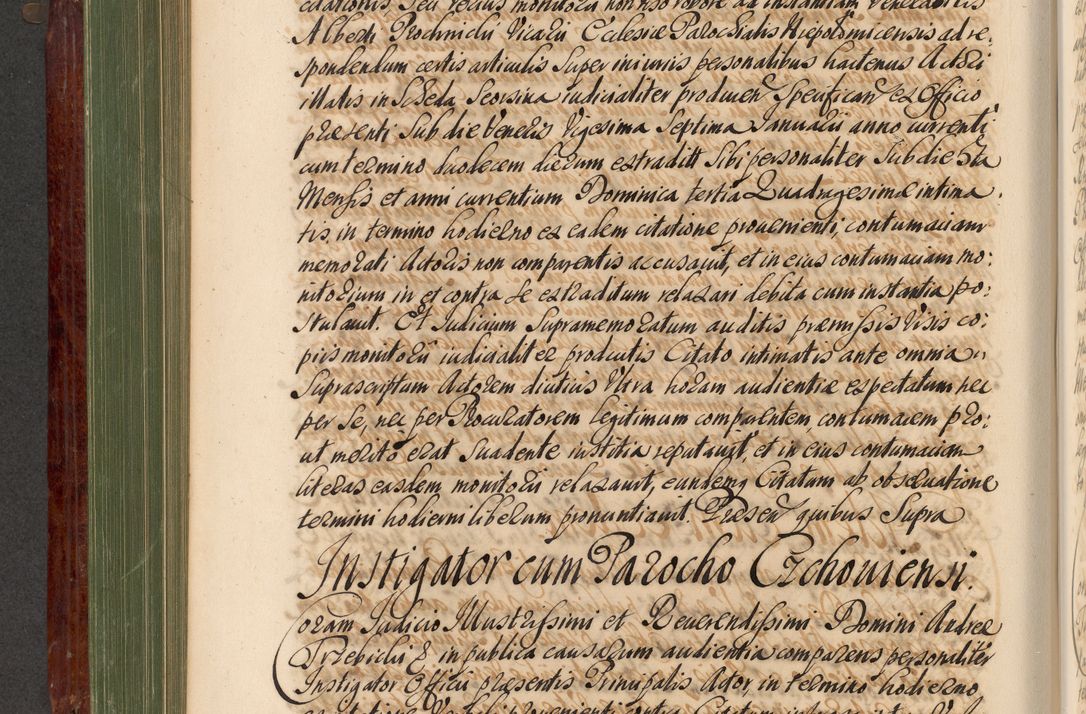 citationis seu verius monitorii non suo robore ad instantiam Venerabilis
Alberti Prochnicki Vicarii Ecclesiae Parochialis Niepołomicensis ad re,
spondendum certis articulis super iniuriis personalibus hactenus Actori
illatis in Scheda Seorsiva iudicialiter producen Specifican ex Officio
praesenti Sub die Veneris Vigesima Septima Januarii anno currenti
cum termino hodierno dierum extraditi Sibi personaliter Sub die 5ta
Mensis et anni currentium Dominica tertia Quadragesimae intima
tis, in termino hodierno ex eadem citatione provenienti, contumaciam
memorati Actoris non comparentis accusavit, et in eius contumaciam mo:
nitorium in et contra se extraditum relaxari debita cum instantia po:
stulavit. Et Iudicium Supramemoratum auditis praemissis visis co:
piis monitorii iudicialiter productis Citato intimatis ante omnia
Suprascriptum Actorem diutius Ultra horam audientiae expectatum nec
per se, nec per Procuratorem legitimum comparentem, contumacem pro:
ut merito erat Suadente iustitia reputavit, et in eius contumaciam
literas easdem monitorii relaxavit, eundemq Citatum ab observatione
termini hodierni liberum pronuntiavit. Praesen quibus Supra
Instigator cum Parocho Czchoviensi.
Coram Iudicio Illustrissimi et Reverendissimi Domini Andreae
Trzebicki & in publica causarum audientia comparens personaliter
Instigator Officii praesentis Principalis Actor, in termino hodierno